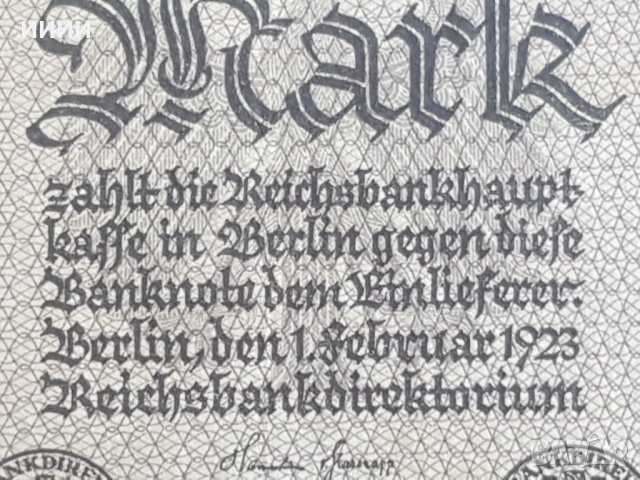 Mark
zahlt die Reichsbankhaupt-
kasse in Berlin gegen diese
Banknote dem Einlieferer.
Berlin, den 1. Februar 1923
Reichsbankdirektorium